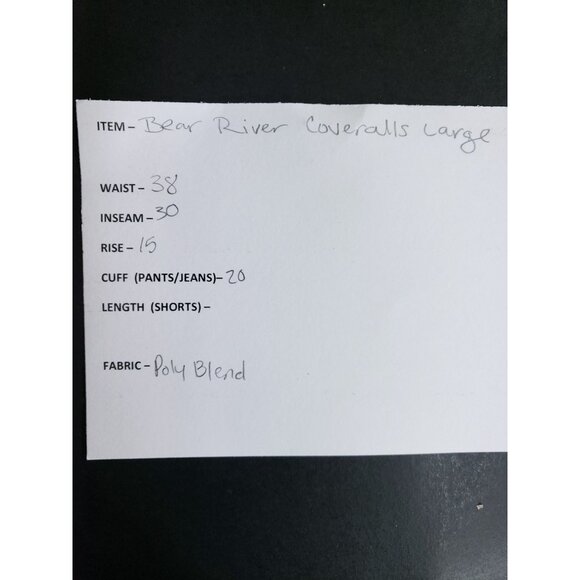 ITEM – Bear River Coveralls Large
WAIST – 38
INSEAM – 30
RISE – 15
CUFF (PANTS/JEANS)– 20
LENGTH (SHORTS) –
FABRIC – Poly Blend